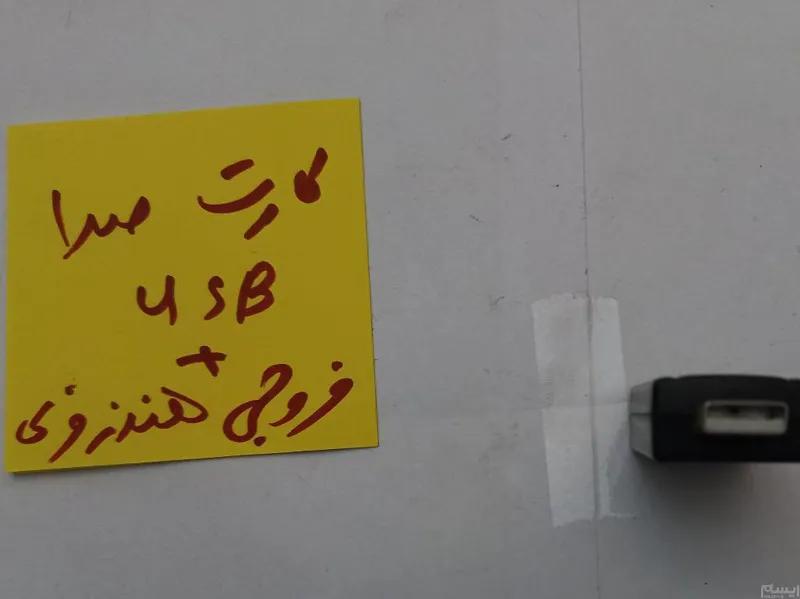 کارت صدا
USB
+
خروجی هندزفری
ایسام